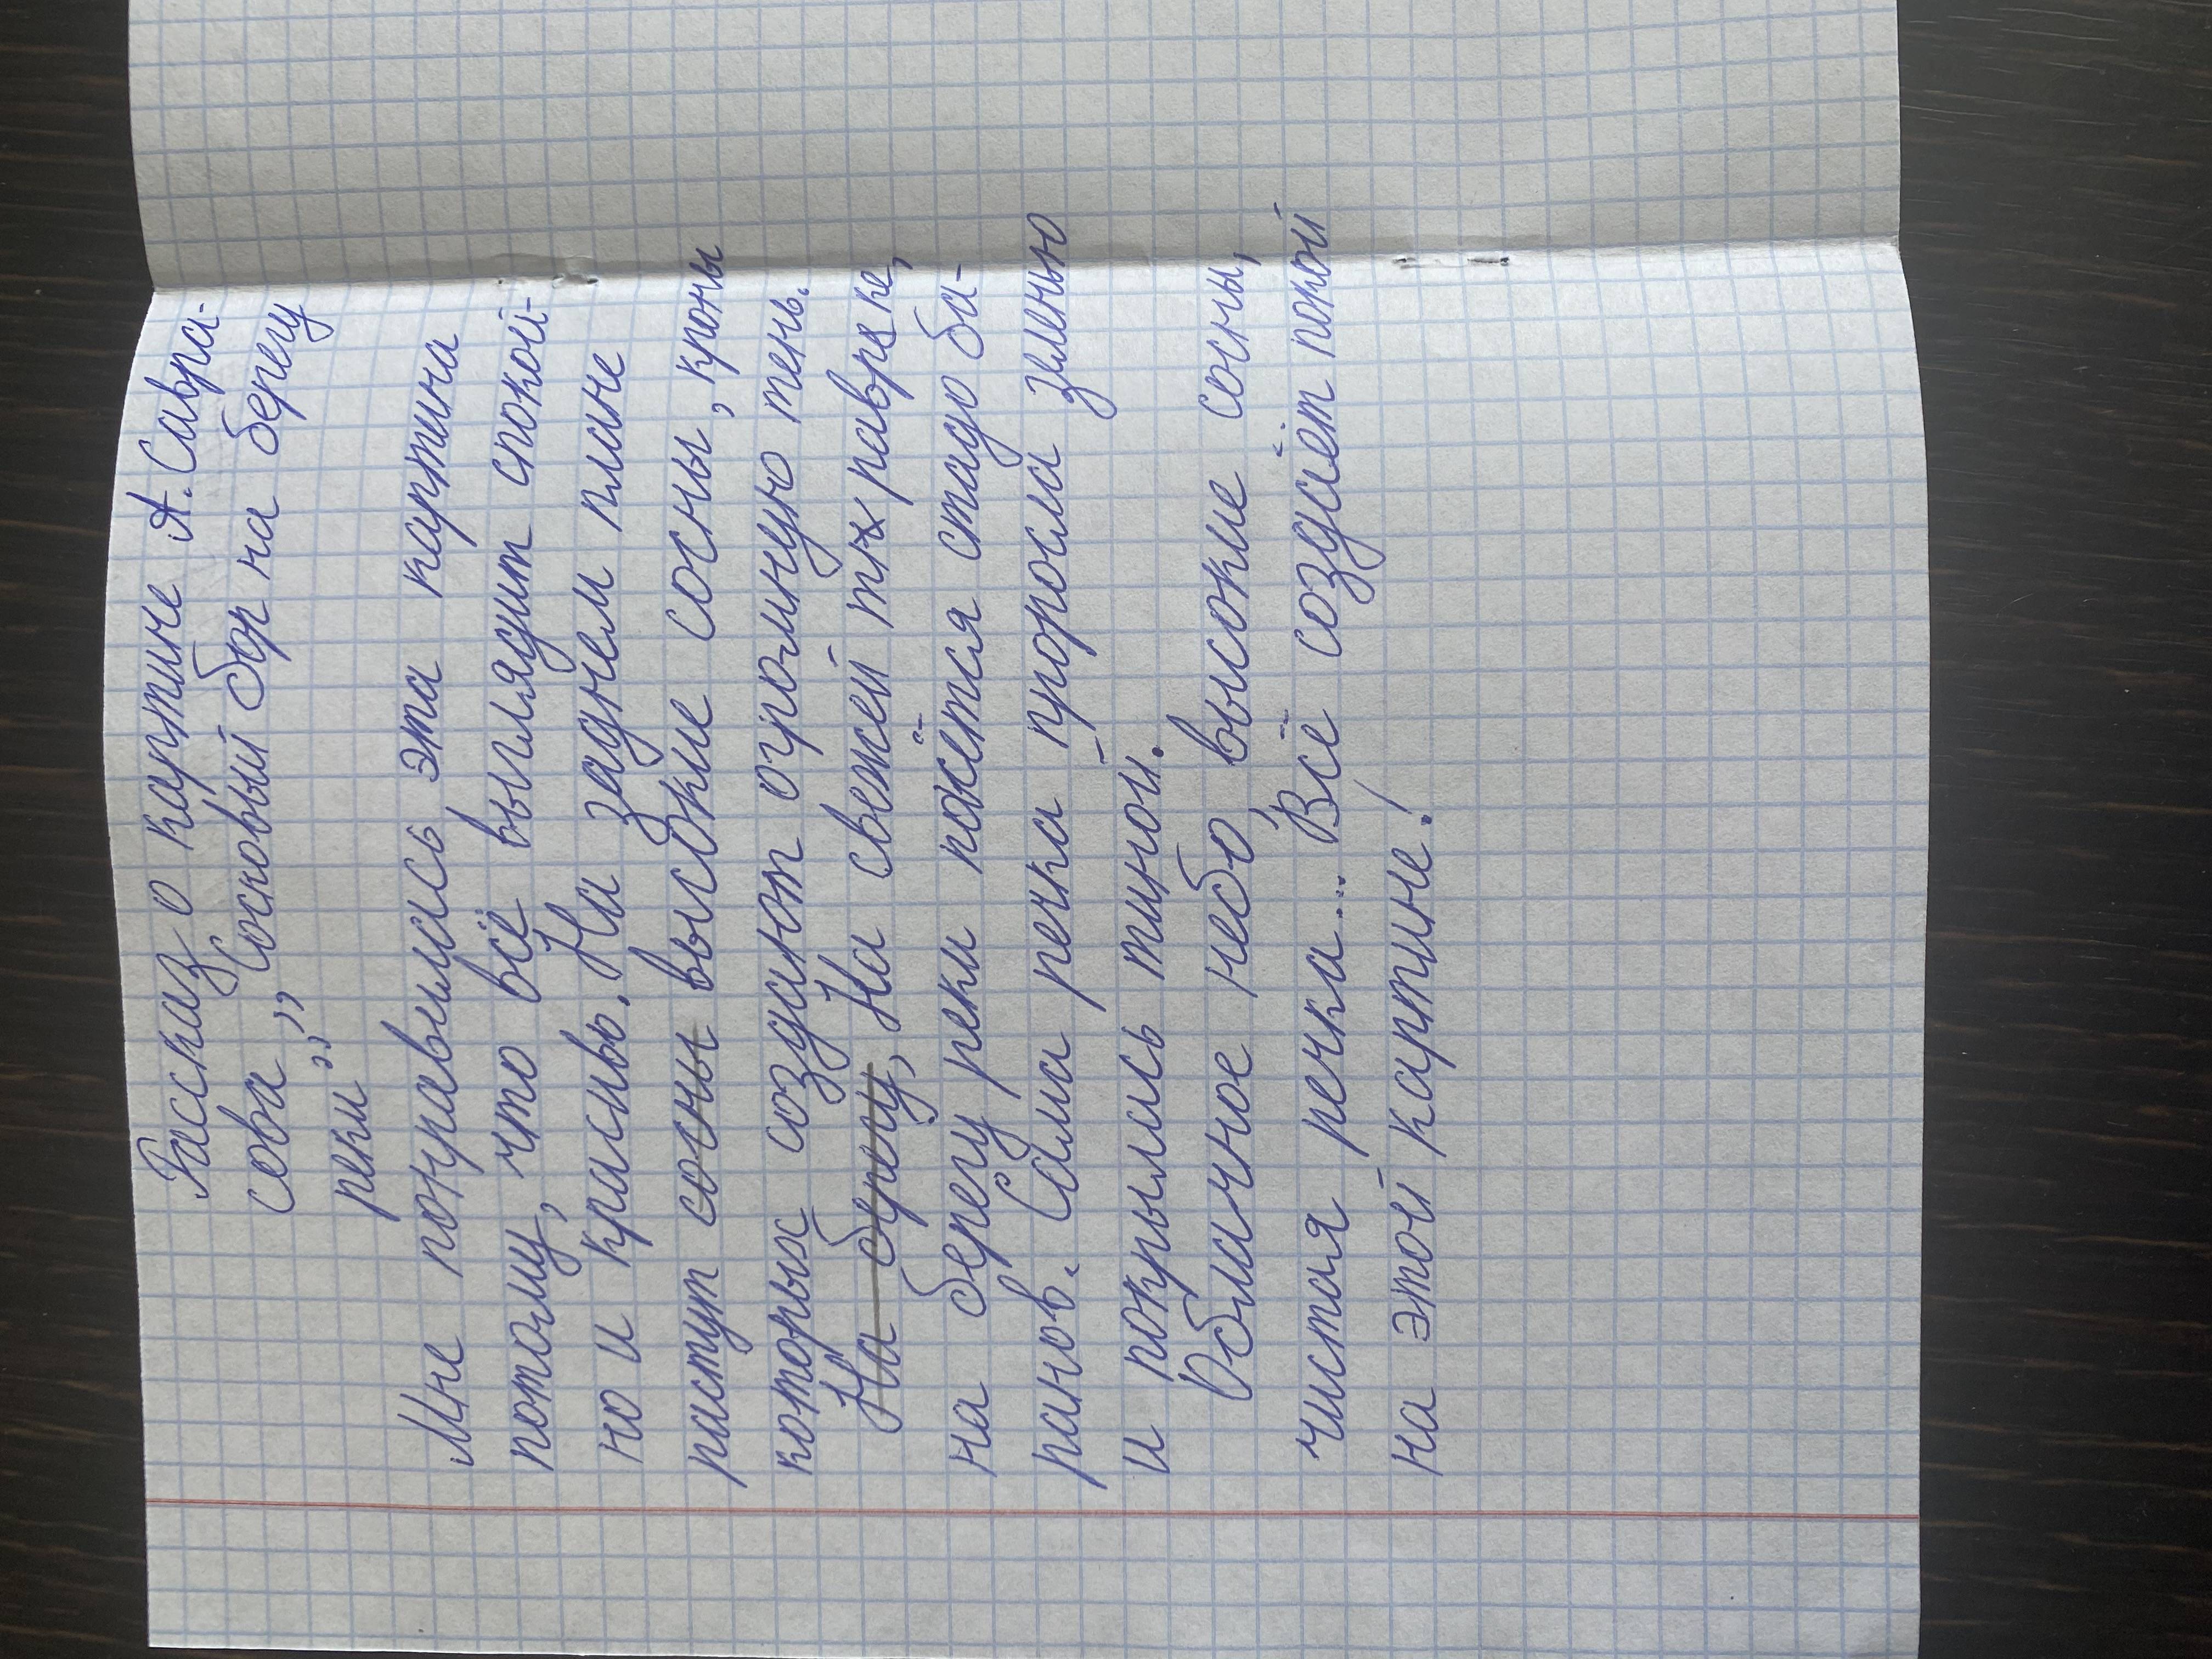 Рассказ о картине А. Савра-
сова „Сосновый бор на берегу
реки"
Мне понравилась эта картина
потому, что всё выглядит спокой-
но и красиво. На заднем плане
растут сосны высокие сосны, кроны
которых создают огромную тень.
На берегу, На свежей травке,
на берегу реки пасётся стадо ба-
ранов. Сама речка проросла зеленью
и покрылась тиной.
Облачное небо, высокие сосны,
чистая речка... Всё создаёт покой
на этой картине!